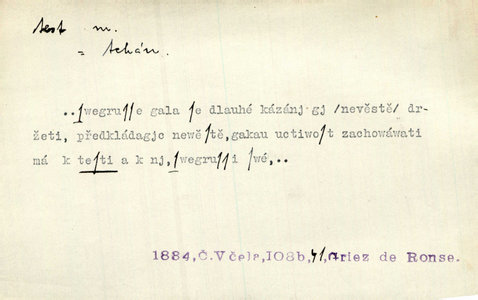 test m.
= tchán.
..ſwegruſſe gala ſe dlauhé kázánj gj /nevěstě/ dr-
žeti, předkládagjc newěſtě,gakau uctiwoſt zachowáwati
má k teſti a k nj,ſwegruſſi ſwé,..
1884,Č.Včela,108b,41,Griez de Ronse.